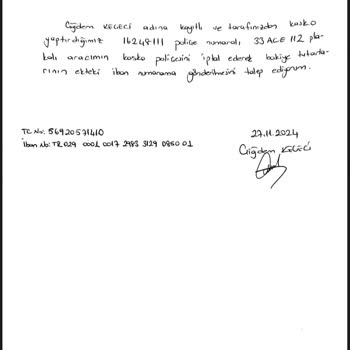 Çiğdem KELECİ adına kayıtlı ve tarafımızdan kasko
yaptırdığımız 16248111 police numaralı 33 ACE 112 pla-
kalı aracımın kasko policesini iptal ederek bakiye tutarla-
rının ekteki iban numarama gönderilmesini talep ediyorum.
TC No: 56920571410
İban No: TR 029 0001 0017 2983 3129 0850 01
27.11.2024
Çiğdem KELECİ